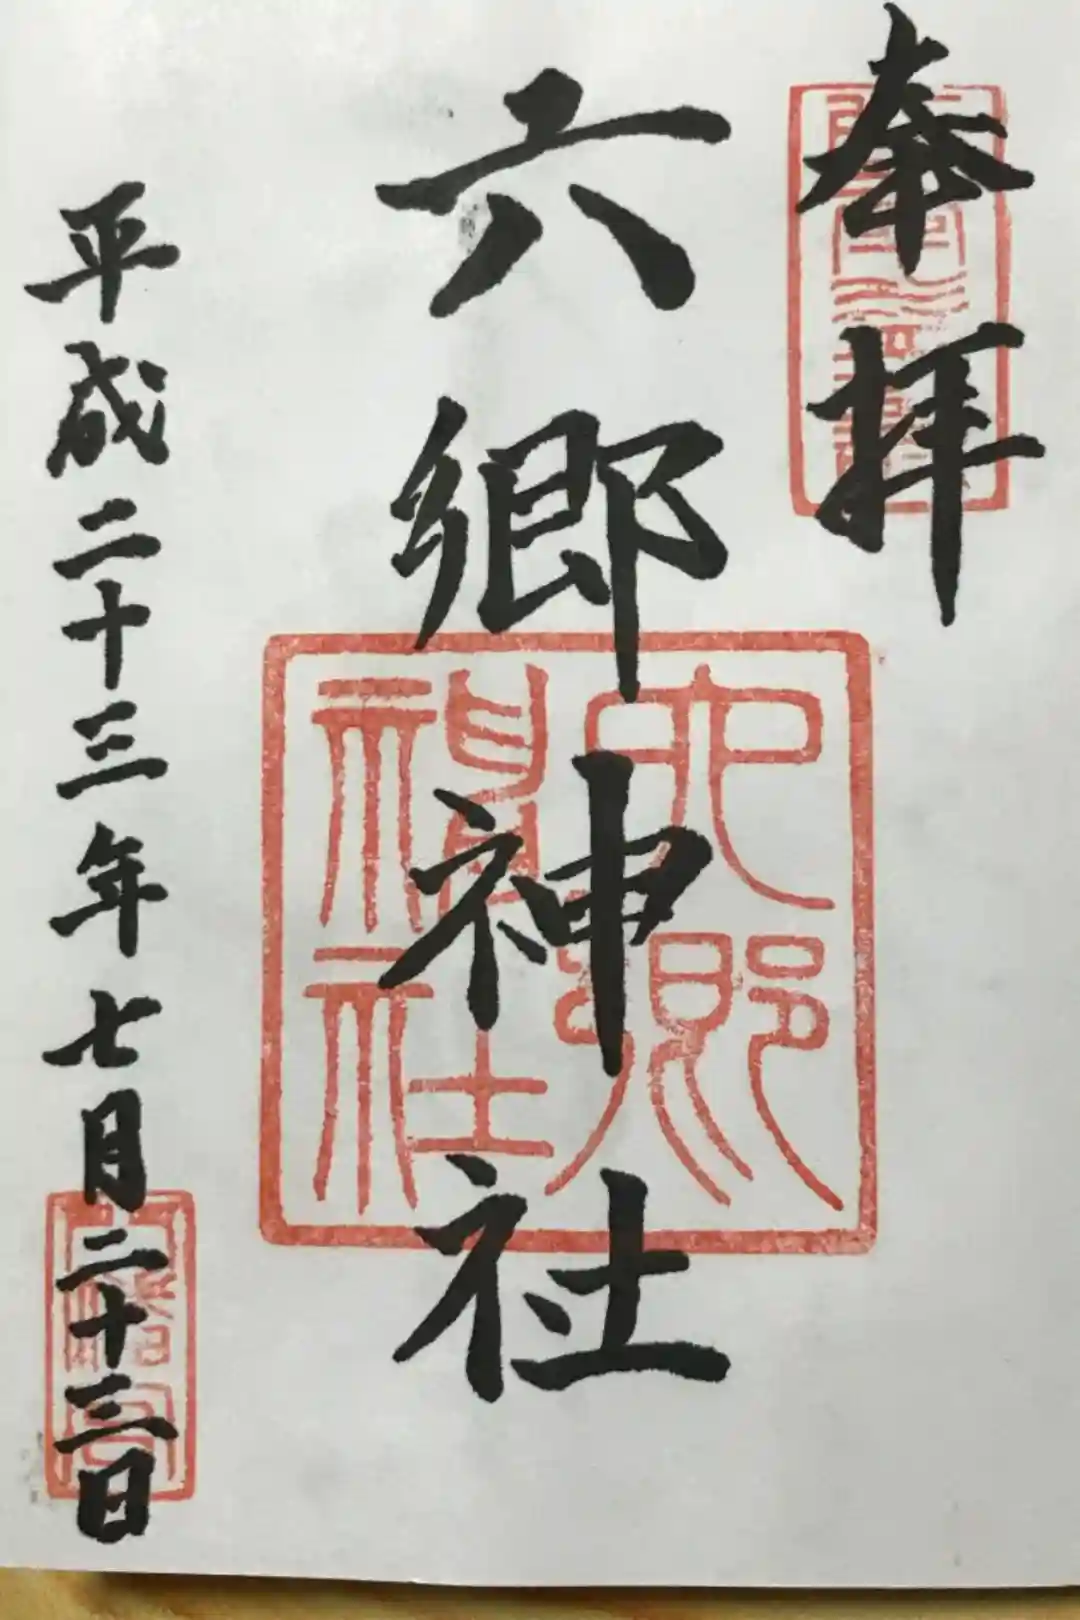 奉拝
六郷神社
六郷神社
平成二十三年七月二十三日